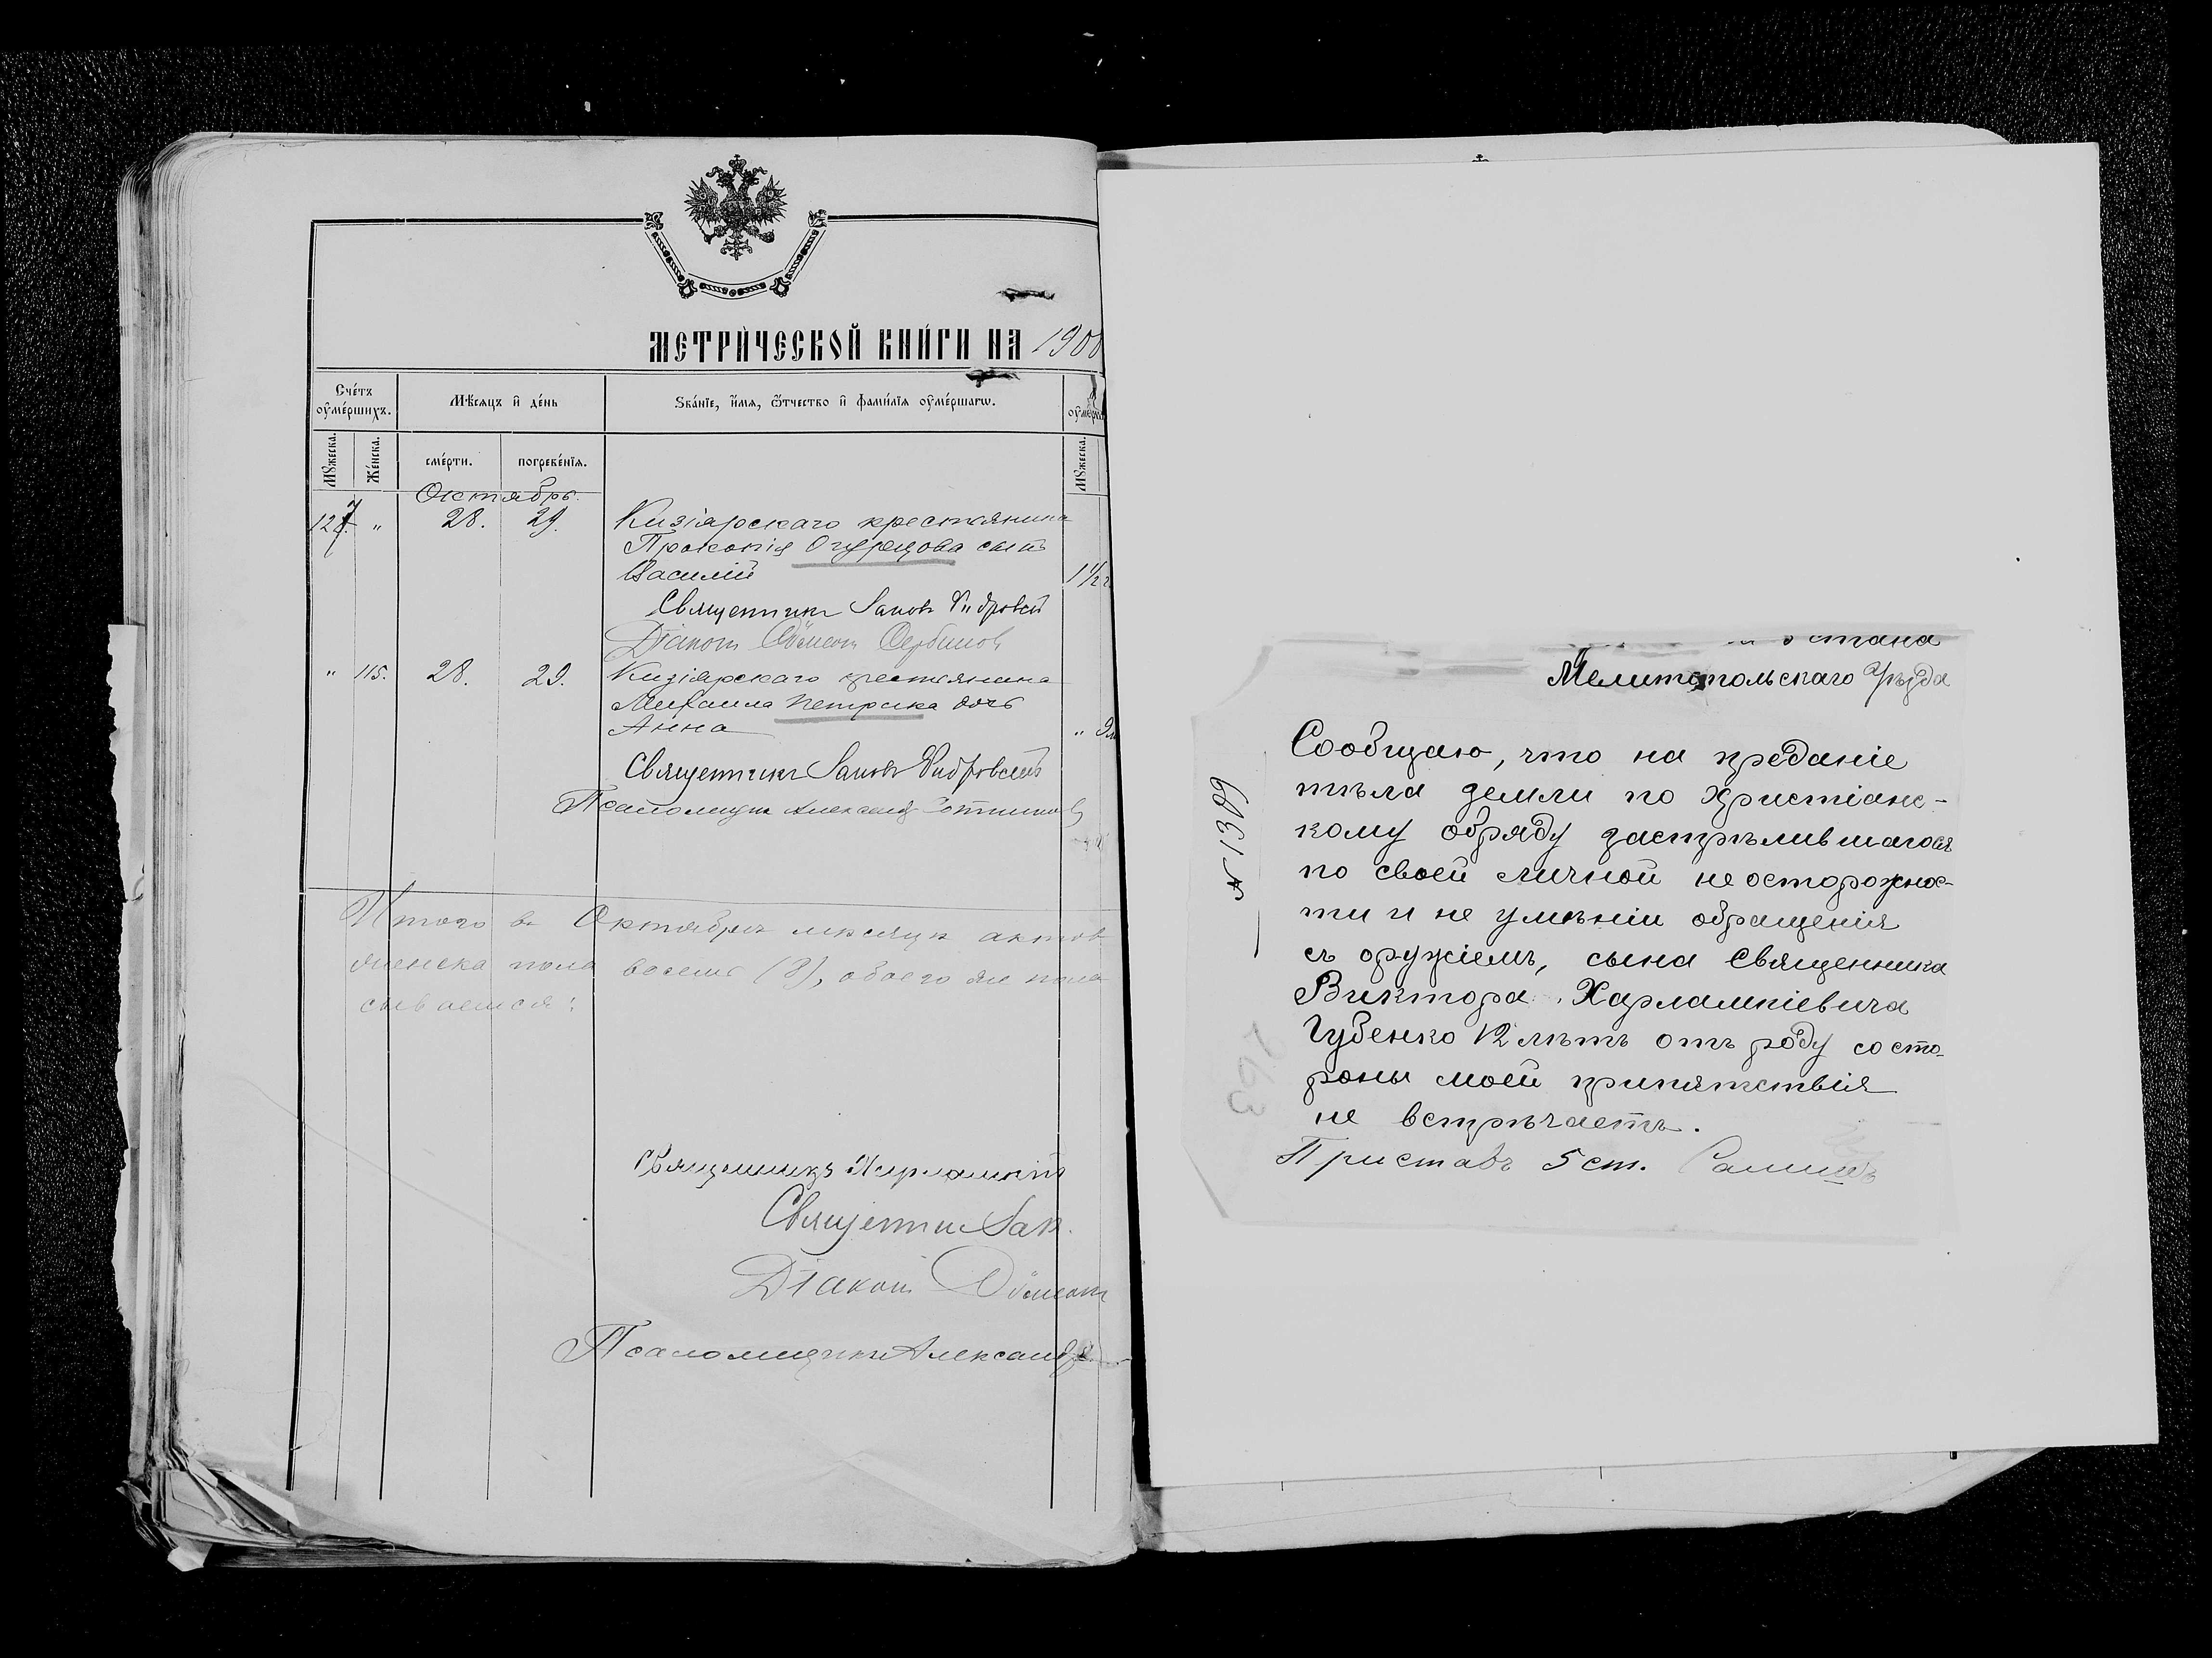 МЕТРИЧЕСКОЙ КНИГИ НА 1900
Счетъ умершихъ.
Мѣсяцъ и день
Званіе, имя, отчество и фамилія умершаго.
Мужеска.
Женска.
смерти.
погребенія.
Мужеска.
Октябрь.
127. " 28. 29. Кизіярскаго крестьянина
Прокопія Огурцова сынъ
Василій 1 1/2
Священникъ Іаковъ
Діаконъ Сербиновъ
" 115. 28. 29. Кизіярскаго крестьянина
Михаила Петрика дочь
Анна " 9
Священникъ Іаковъ
Псаломщикъ Александръ
Итого въ Октябрѣ мѣсяцѣ актовъ
женска пола восемь (8), обоего же пола
сывается:
Священникъ Харлампій
Священник Іак
Діаконъ
Псаломщикъ Александръ
стана
Мелитопольскаго Уѣзда
№ 1389
Сообщаю, что на преданіе
тѣла земли по Христіанс-
кому обряду застрѣлившагося
по своей личной неосторожнос-
ти и не умѣніи обращенія
съ оружіемъ, сына Священника
Виктора Харлампіевича
Губенко 12 лѣтъ отъ роду со сто-
роны моей припятствія
не встрѣчаетъ.
Приставъ 5 ст.
263